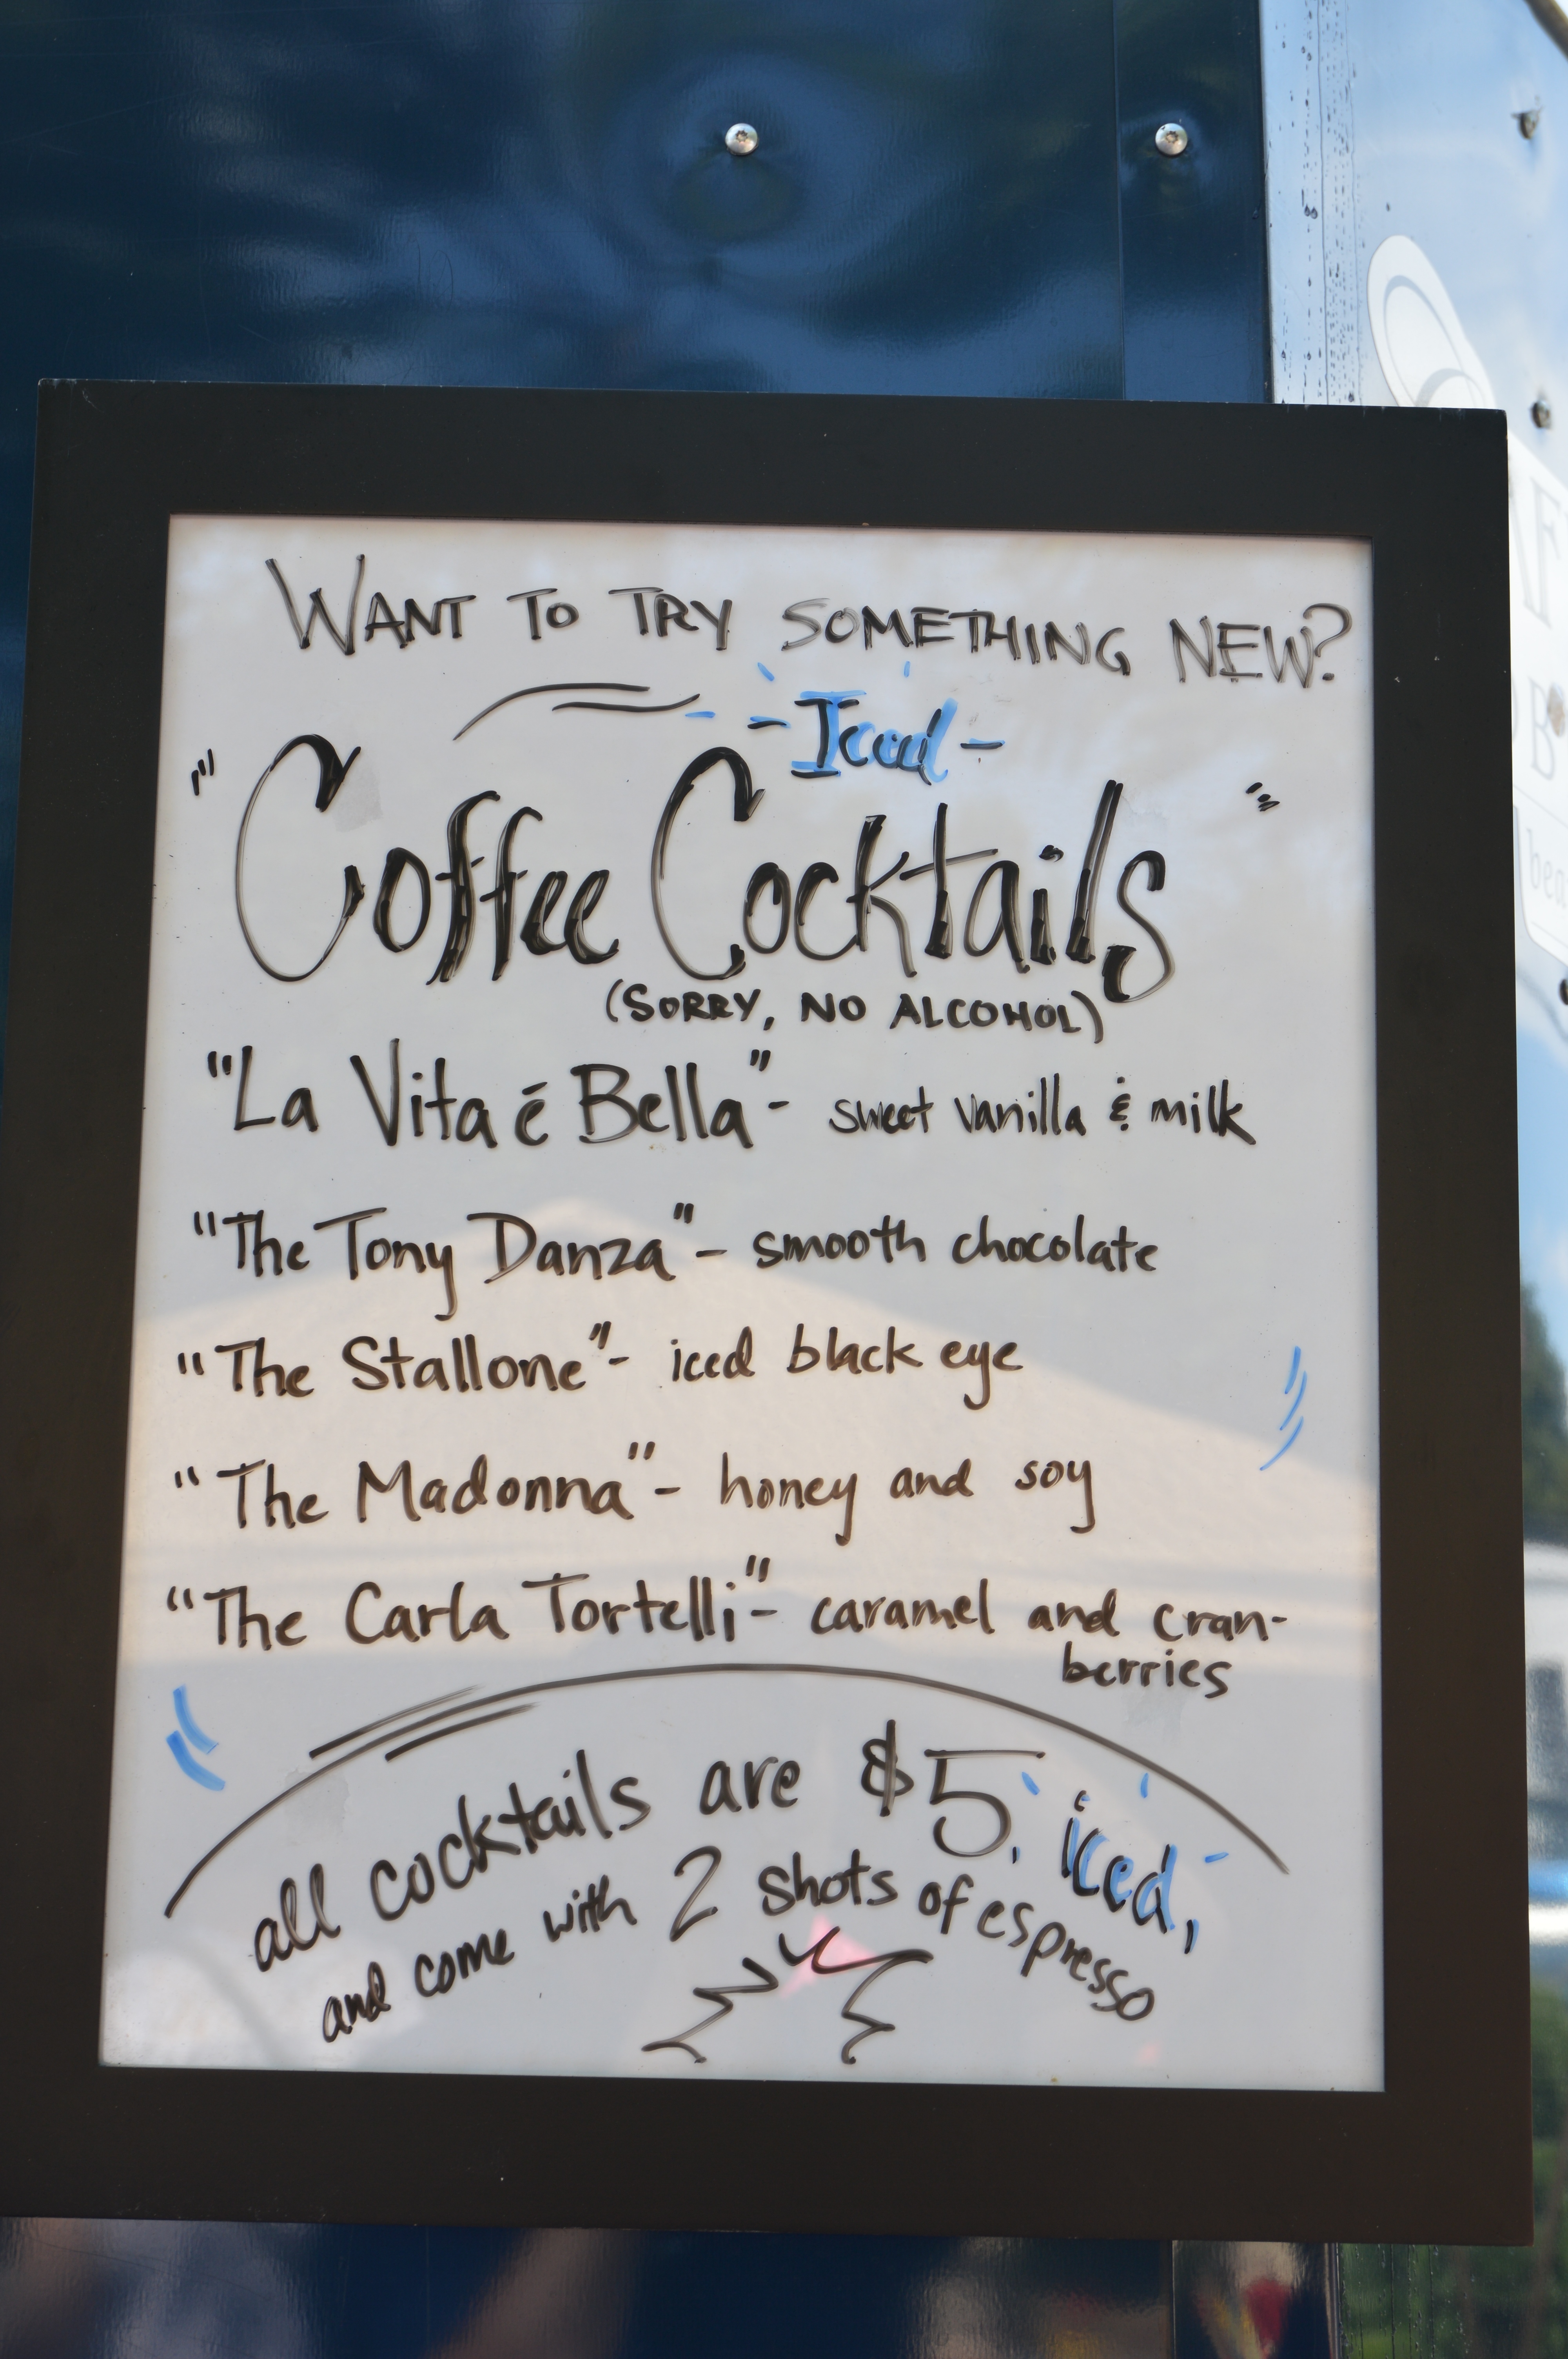 WANT TO TRY SOMETHING NEW?
- Iced -
"Coffee Cocktails"
(SORRY, NO ALCOHOL)
"La Vita é Bella" - sweet vanilla & milk
"The Tony Danza" - smooth chocolate
"The Stallone" - iced black eye
"The Madonna" - honey and soy
"The Carla Tortelli" - caramel and cran-
berries
all cocktails are $5, iced,
and come with 2 shots of espresso